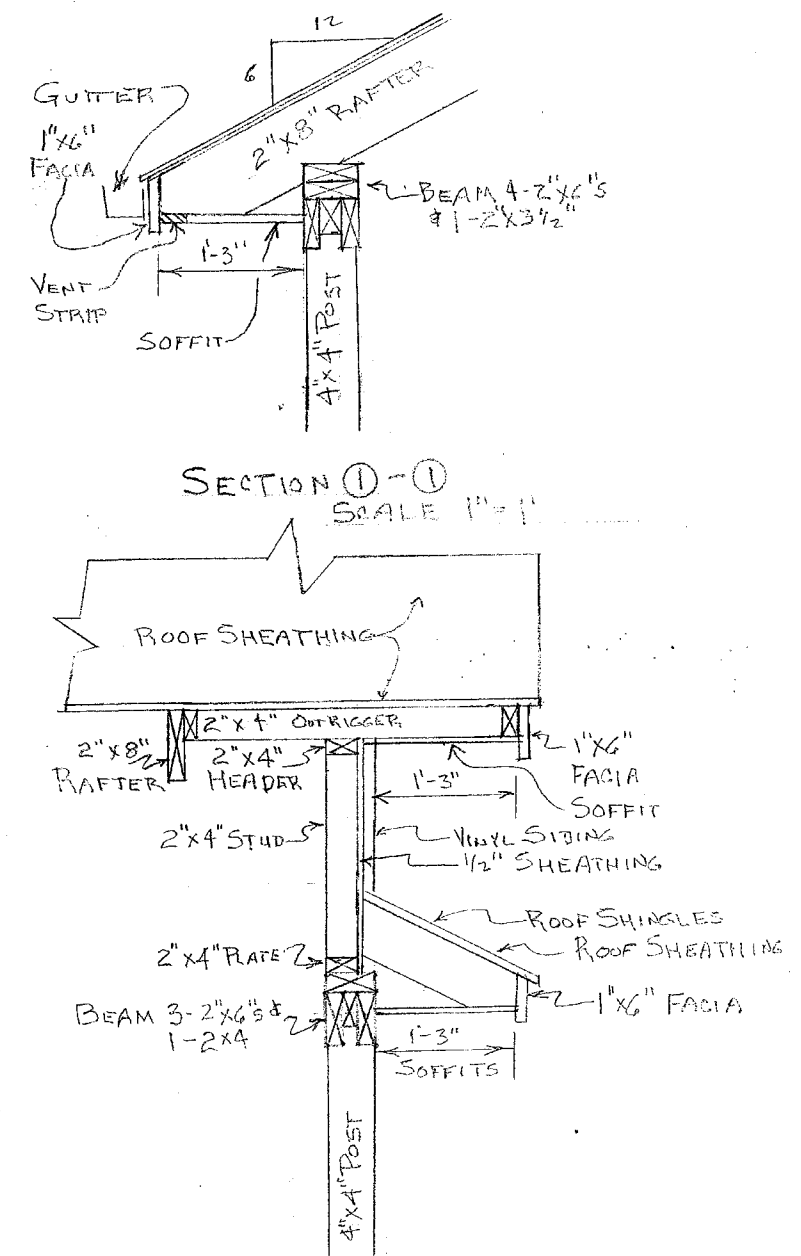 12
6
GUTTER
1"X6"
FACIA
2"X8" RAFTER
BEAM 4-2"X6"S
& 1-2"X3½"
1'-3"
VENT
STRIP
SOFFIT
4"X4" POST
SECTION 1-1
SCALE 1"=1'
ROOF SHEATHING
2"X4" OUTRIGGER
2"X8"
RAFTER
2"X4"
HEADER
1"X6"
FACIA
1'-3"
SOFFIT
2"X4" STUD
VINYL SIDING
1/2" SHEATHING
ROOF SHINGLES
ROOF SHEATHING
2"X4" PLATE
1"X6" FACIA
BEAM 3-2"X6"S &
1-2X4
1'-3"
SOFFITS
4"X4" POST